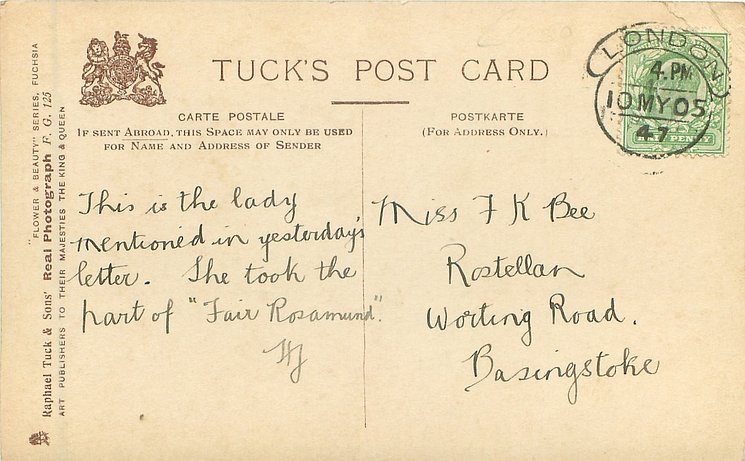 TUCK'S POST CARD
CARTE POSTALE
IF SENT ABROAD, THIS SPACE MAY ONLY BE USED
FOR NAME AND ADDRESS OF SENDER
POSTKARTE
(FOR ADDRESS ONLY.)
LONDON
4. PM
10 MY 05
47
HALFPENNY
"FLOWER & BEAUTY" SERIES, FUCHSIA
Raphael Tuck & Sons' Real Photograph F. G. 125
ART PUBLISHERS TO THEIR MAJESTIES THE KING & QUEEN
This is the lady
mentioned in yesterday's
letter. She took the
part of "Fair Rosamund".
Miss F K Bee
Rostellan
Worting Road.
Basingstoke